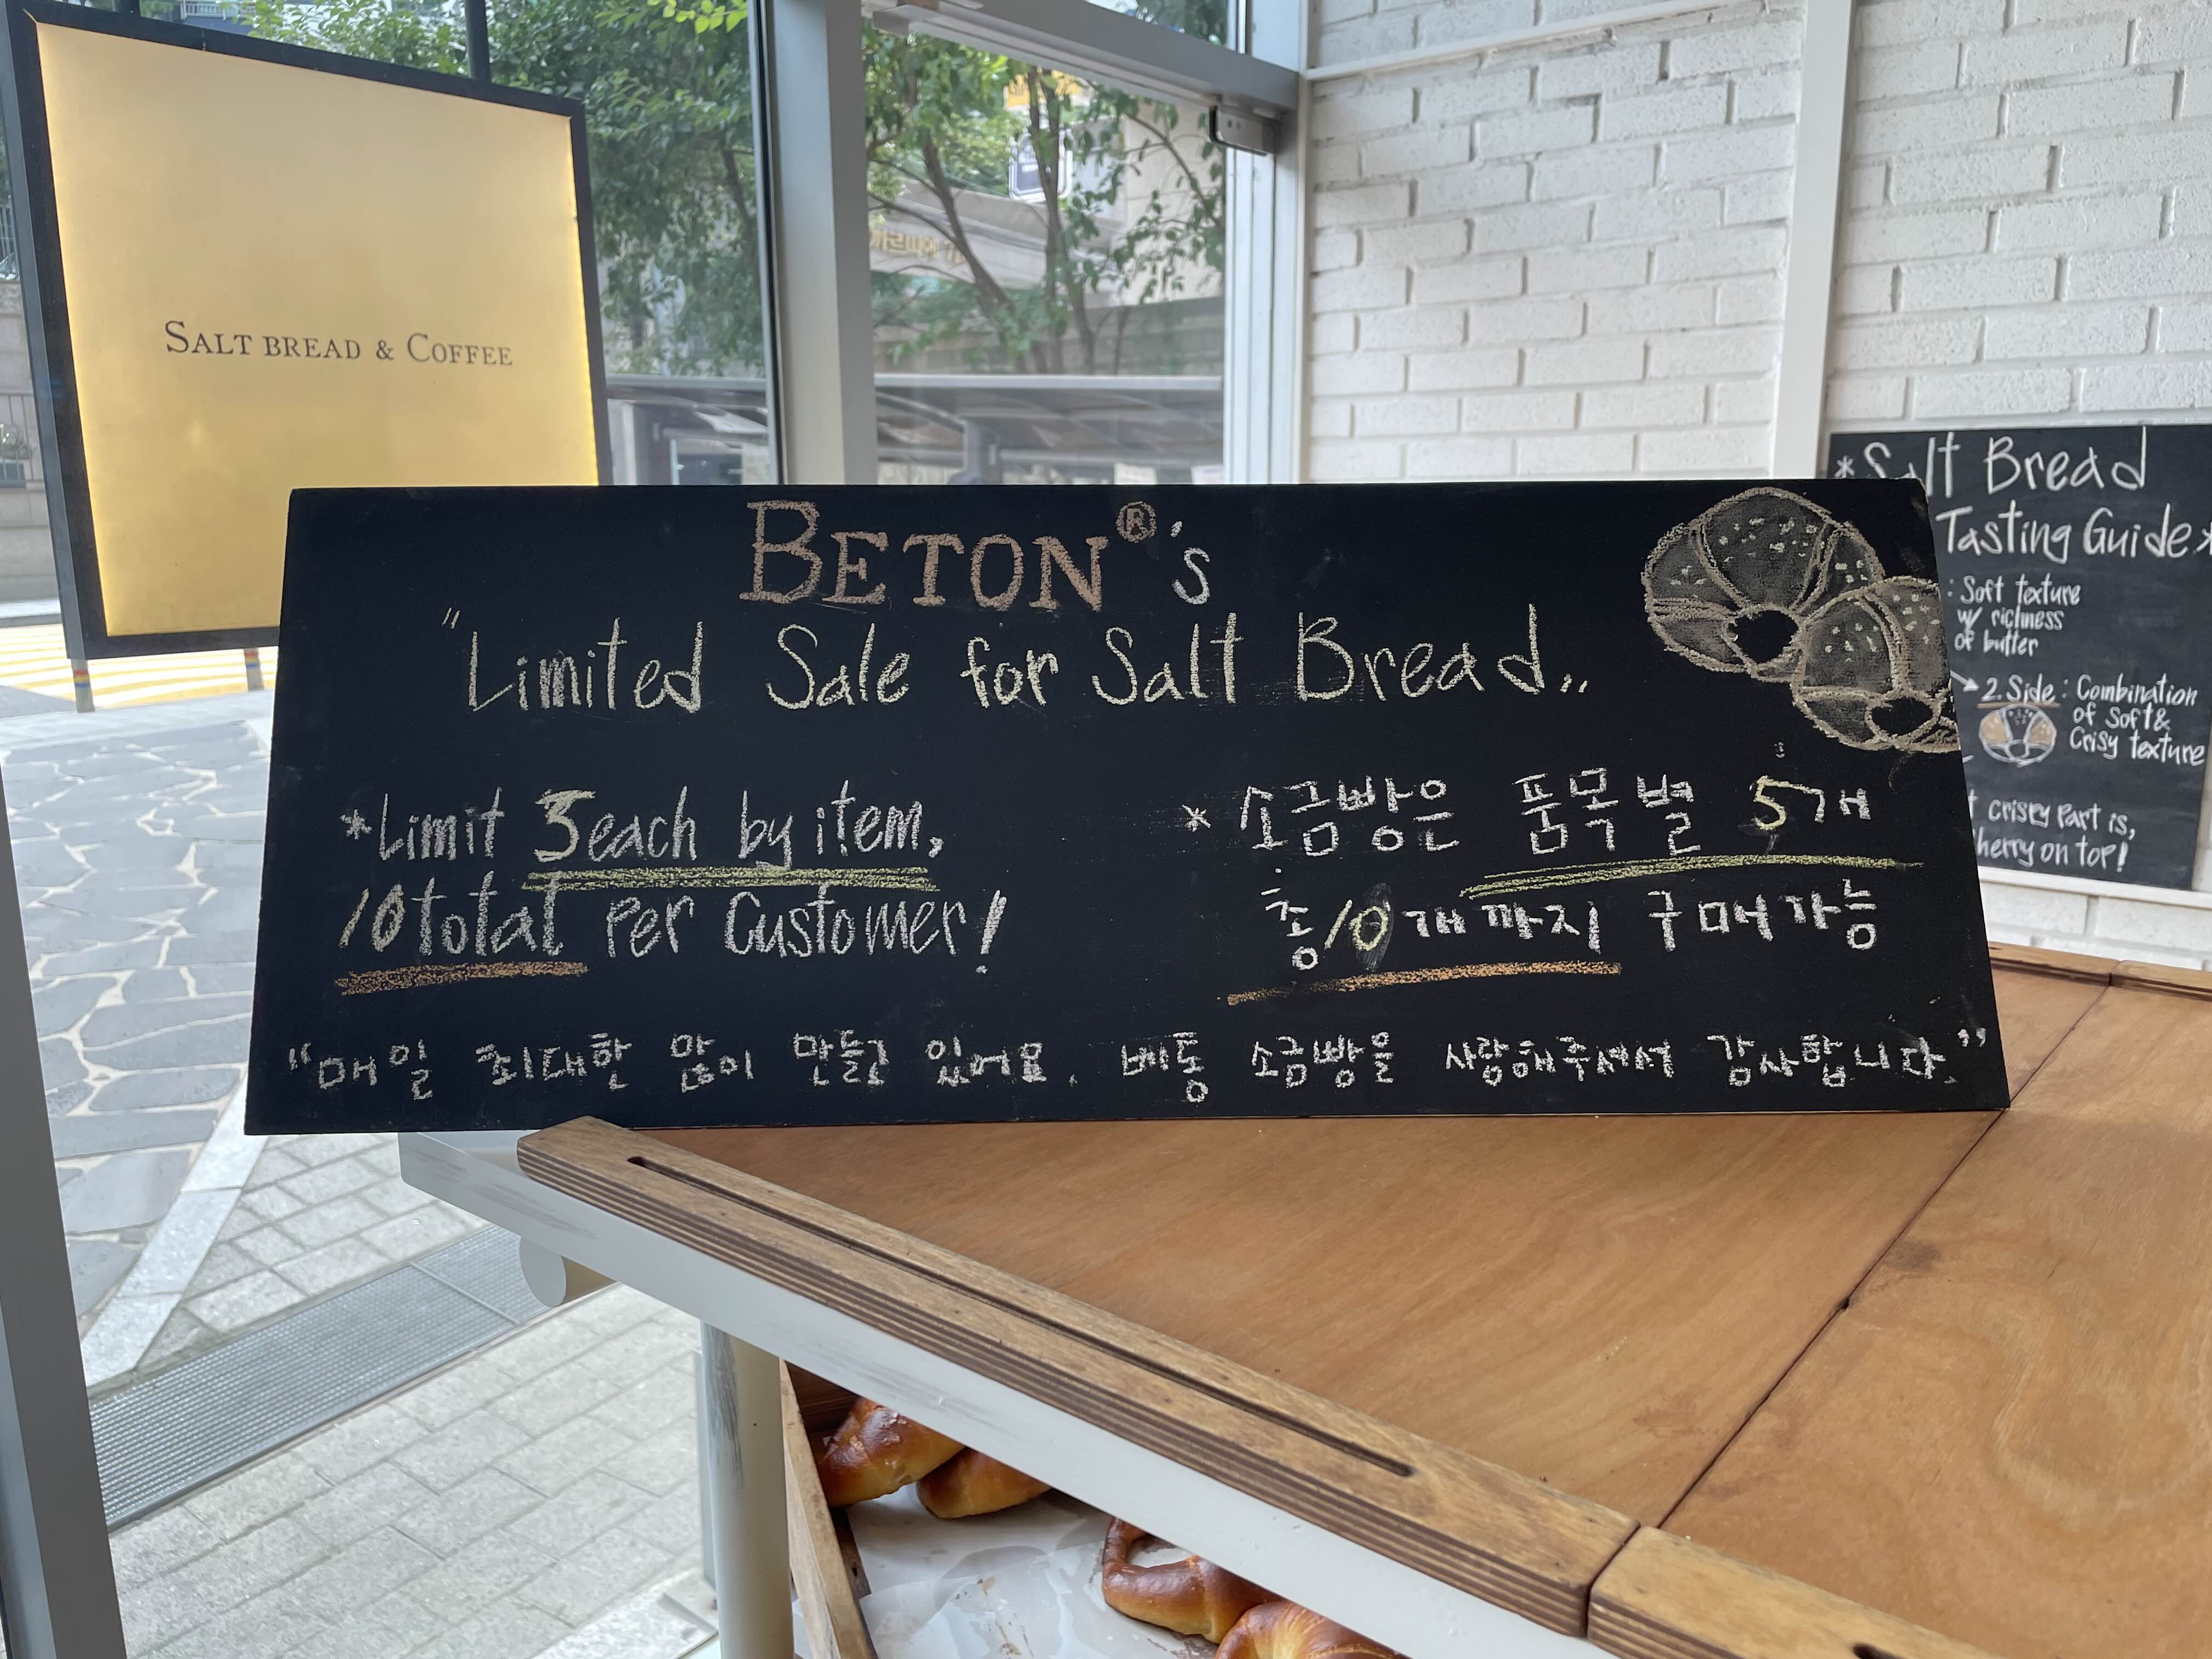 SALT BREAD & COFFEE
BETON®'s
"Limited Sale for Salt Bread,,
*Limit 5 each by item,
10 total Per Customer!
* 소금빵은 품목별 5개
총 10개까지 구매가능
"매일 최대한 많이 만들고 있어요. 베통 소금빵을 사랑해주셔서 감사합니다."
*Salt Bread
Tasting Guide*
: Soft texture
w/ richness
of butter
2. Side : Combination
of Soft &
Crisy texture
crispy part is,
herry on top!